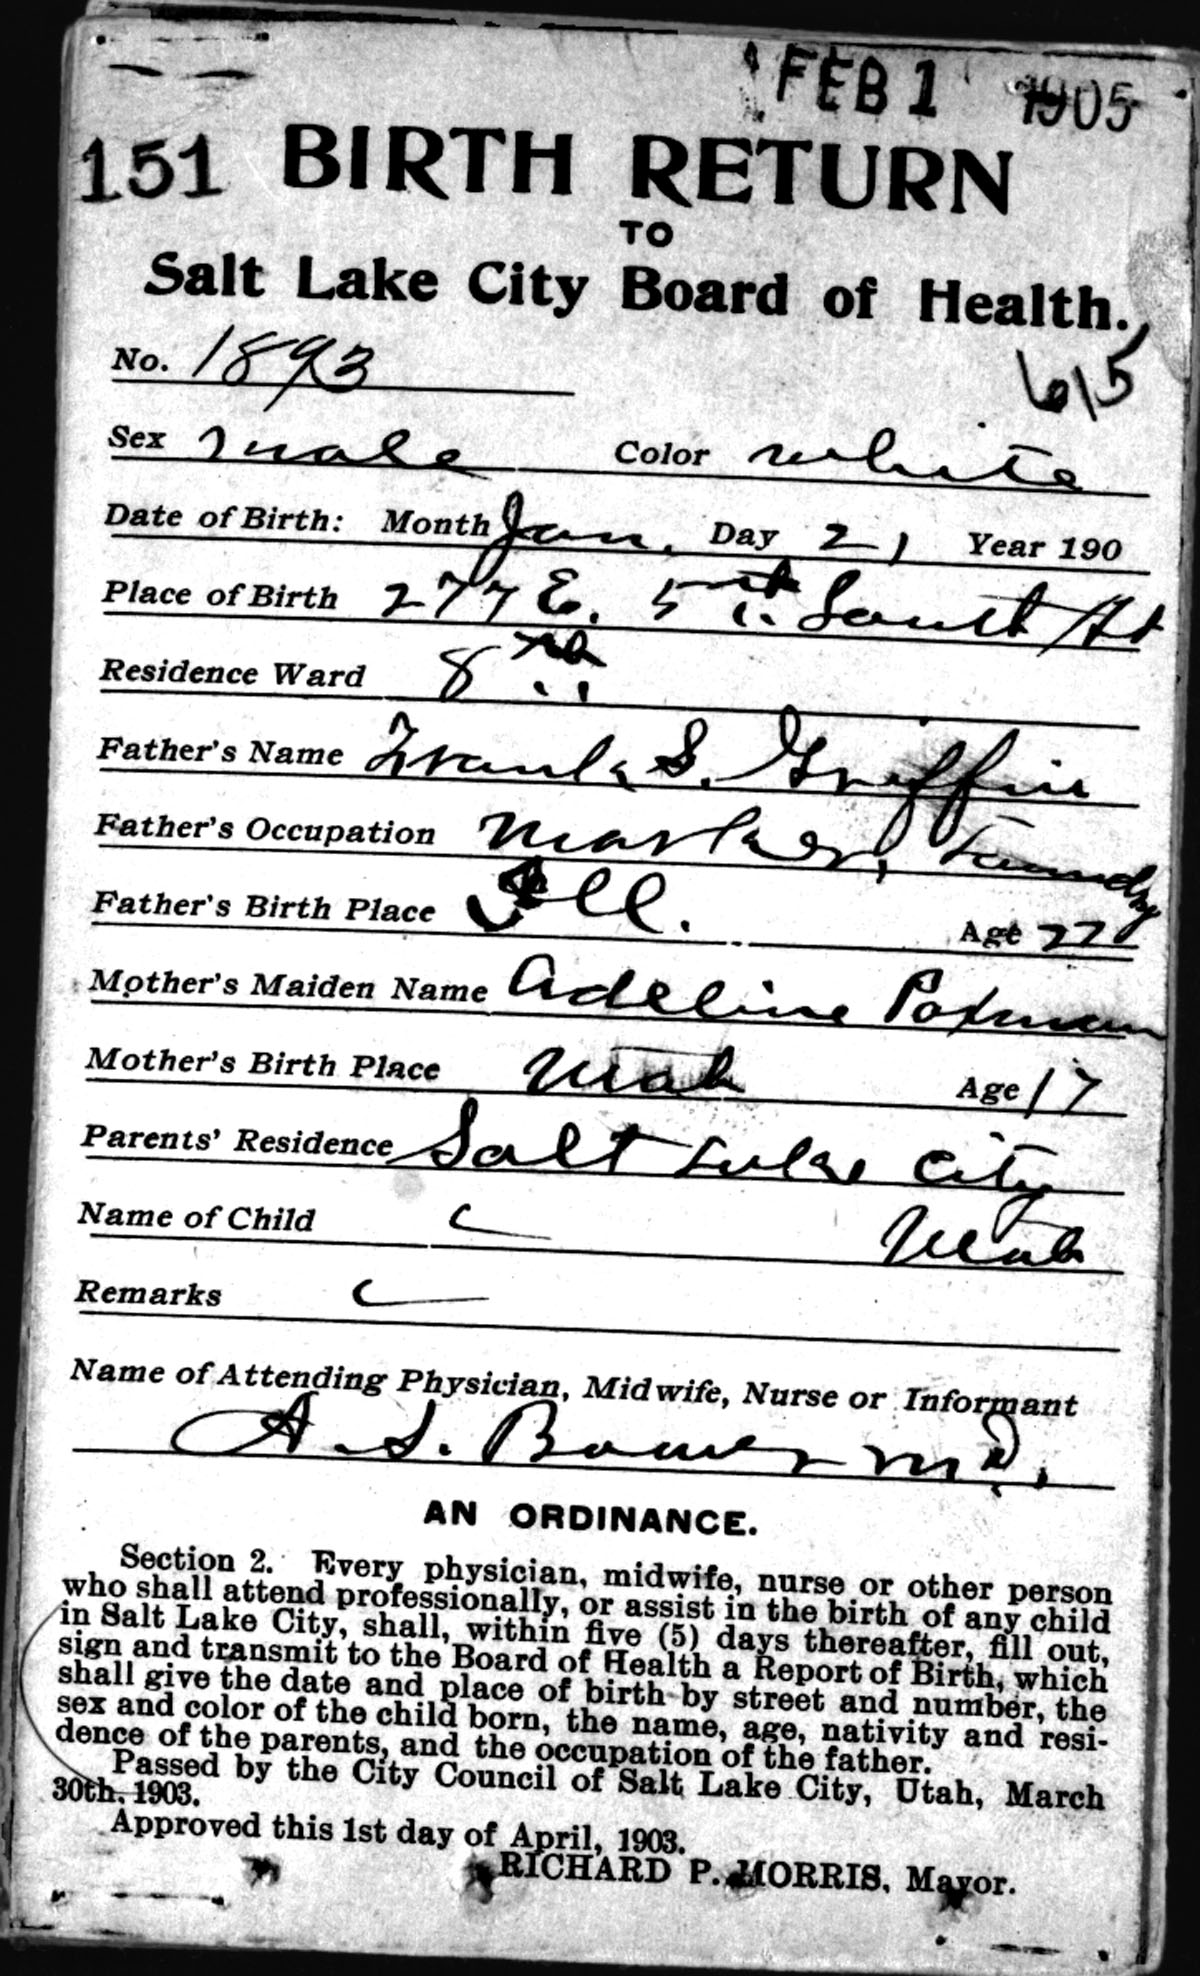 FEB 1 1905
151 BIRTH RETURN
TO
Salt Lake City Board of Health.
No. 1893
615
Sex male Color white
Date of Birth: Month Jan. Day 21 Year 190
Place of Birth 277 E. 5th South St
Residence Ward 8th
Father's Name Frank S. Griffin
Father's Occupation Marker, Laundry
Father's Birth Place Ill. Age 22
Mother's Maiden Name Adeline Poxman
Mother's Birth Place Utah Age 17
Parents' Residence Salt Lake City
Name of Child Utah
Remarks
Name of Attending Physician, Midwife, Nurse or Informant
A. S. Bower M.D.
AN ORDINANCE.
Section 2. Every physician, midwife, nurse or other person
who shall attend professionally, or assist in the birth of any child
in Salt Lake City, shall, within five (5) days thereafter, fill out,
sign and transmit to the Board of Health a Report of Birth, which
shall give the date and place of birth by street and number, the
sex and color of the child born, the name, age, nativity and resi-
dence of the parents, and the occupation of the father.
Passed by the City Council of Salt Lake City, Utah, March
30th, 1903.
Approved this 1st day of April, 1903.
RICHARD P. MORRIS, Mayor.